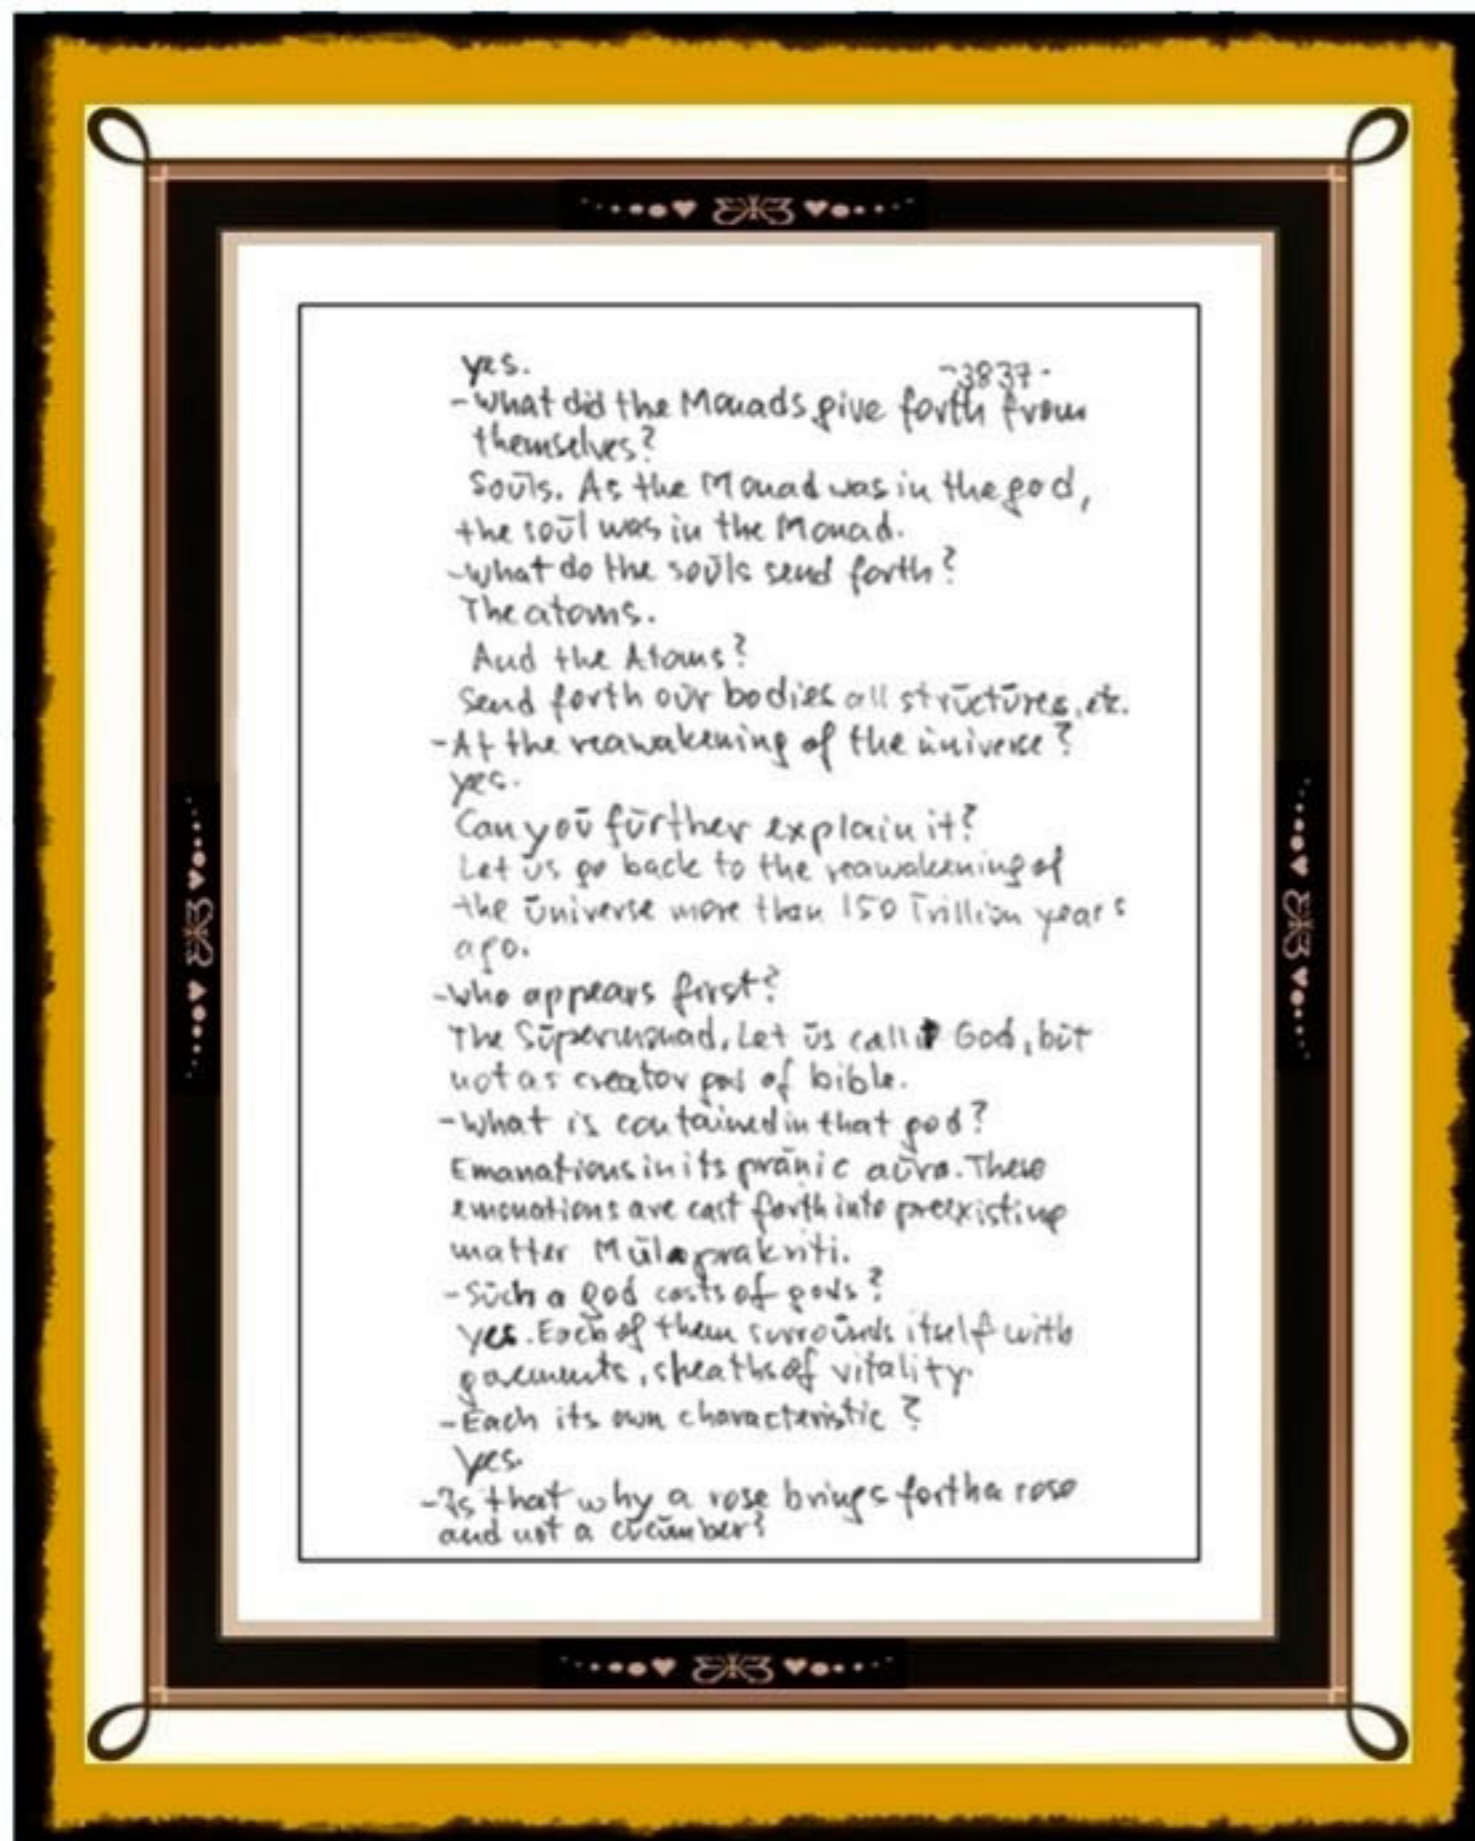 yes.
-3837-
-What did the Monads give forth from
themselves?
Souls. As the Monad was in the god,
the soul was in the Monad.
-What do the souls send forth?
The atoms.
And the Atoms?
Send forth our bodies all structures, etc.
-At the reawakening of the universe?
yes.
Can you further explain it?
Let us go back to the reawakening of
the universe more than 150 Trillion years
ago.
-Who appears first?
The Supermonad. Let us call it God, but
not as creator god of bible.
-What is contained in that god?
Emanations in its pranic aura. These
emanations are cast forth into preexisting
matter Mulaprakriti.
-Such a god casts of gods?
yes. Each of them surrounds itself with
garments, sheaths of vitality.
-Each its own characteristic?
Yes.
-Is that why a rose brings forth a rose
and not a cucumber?